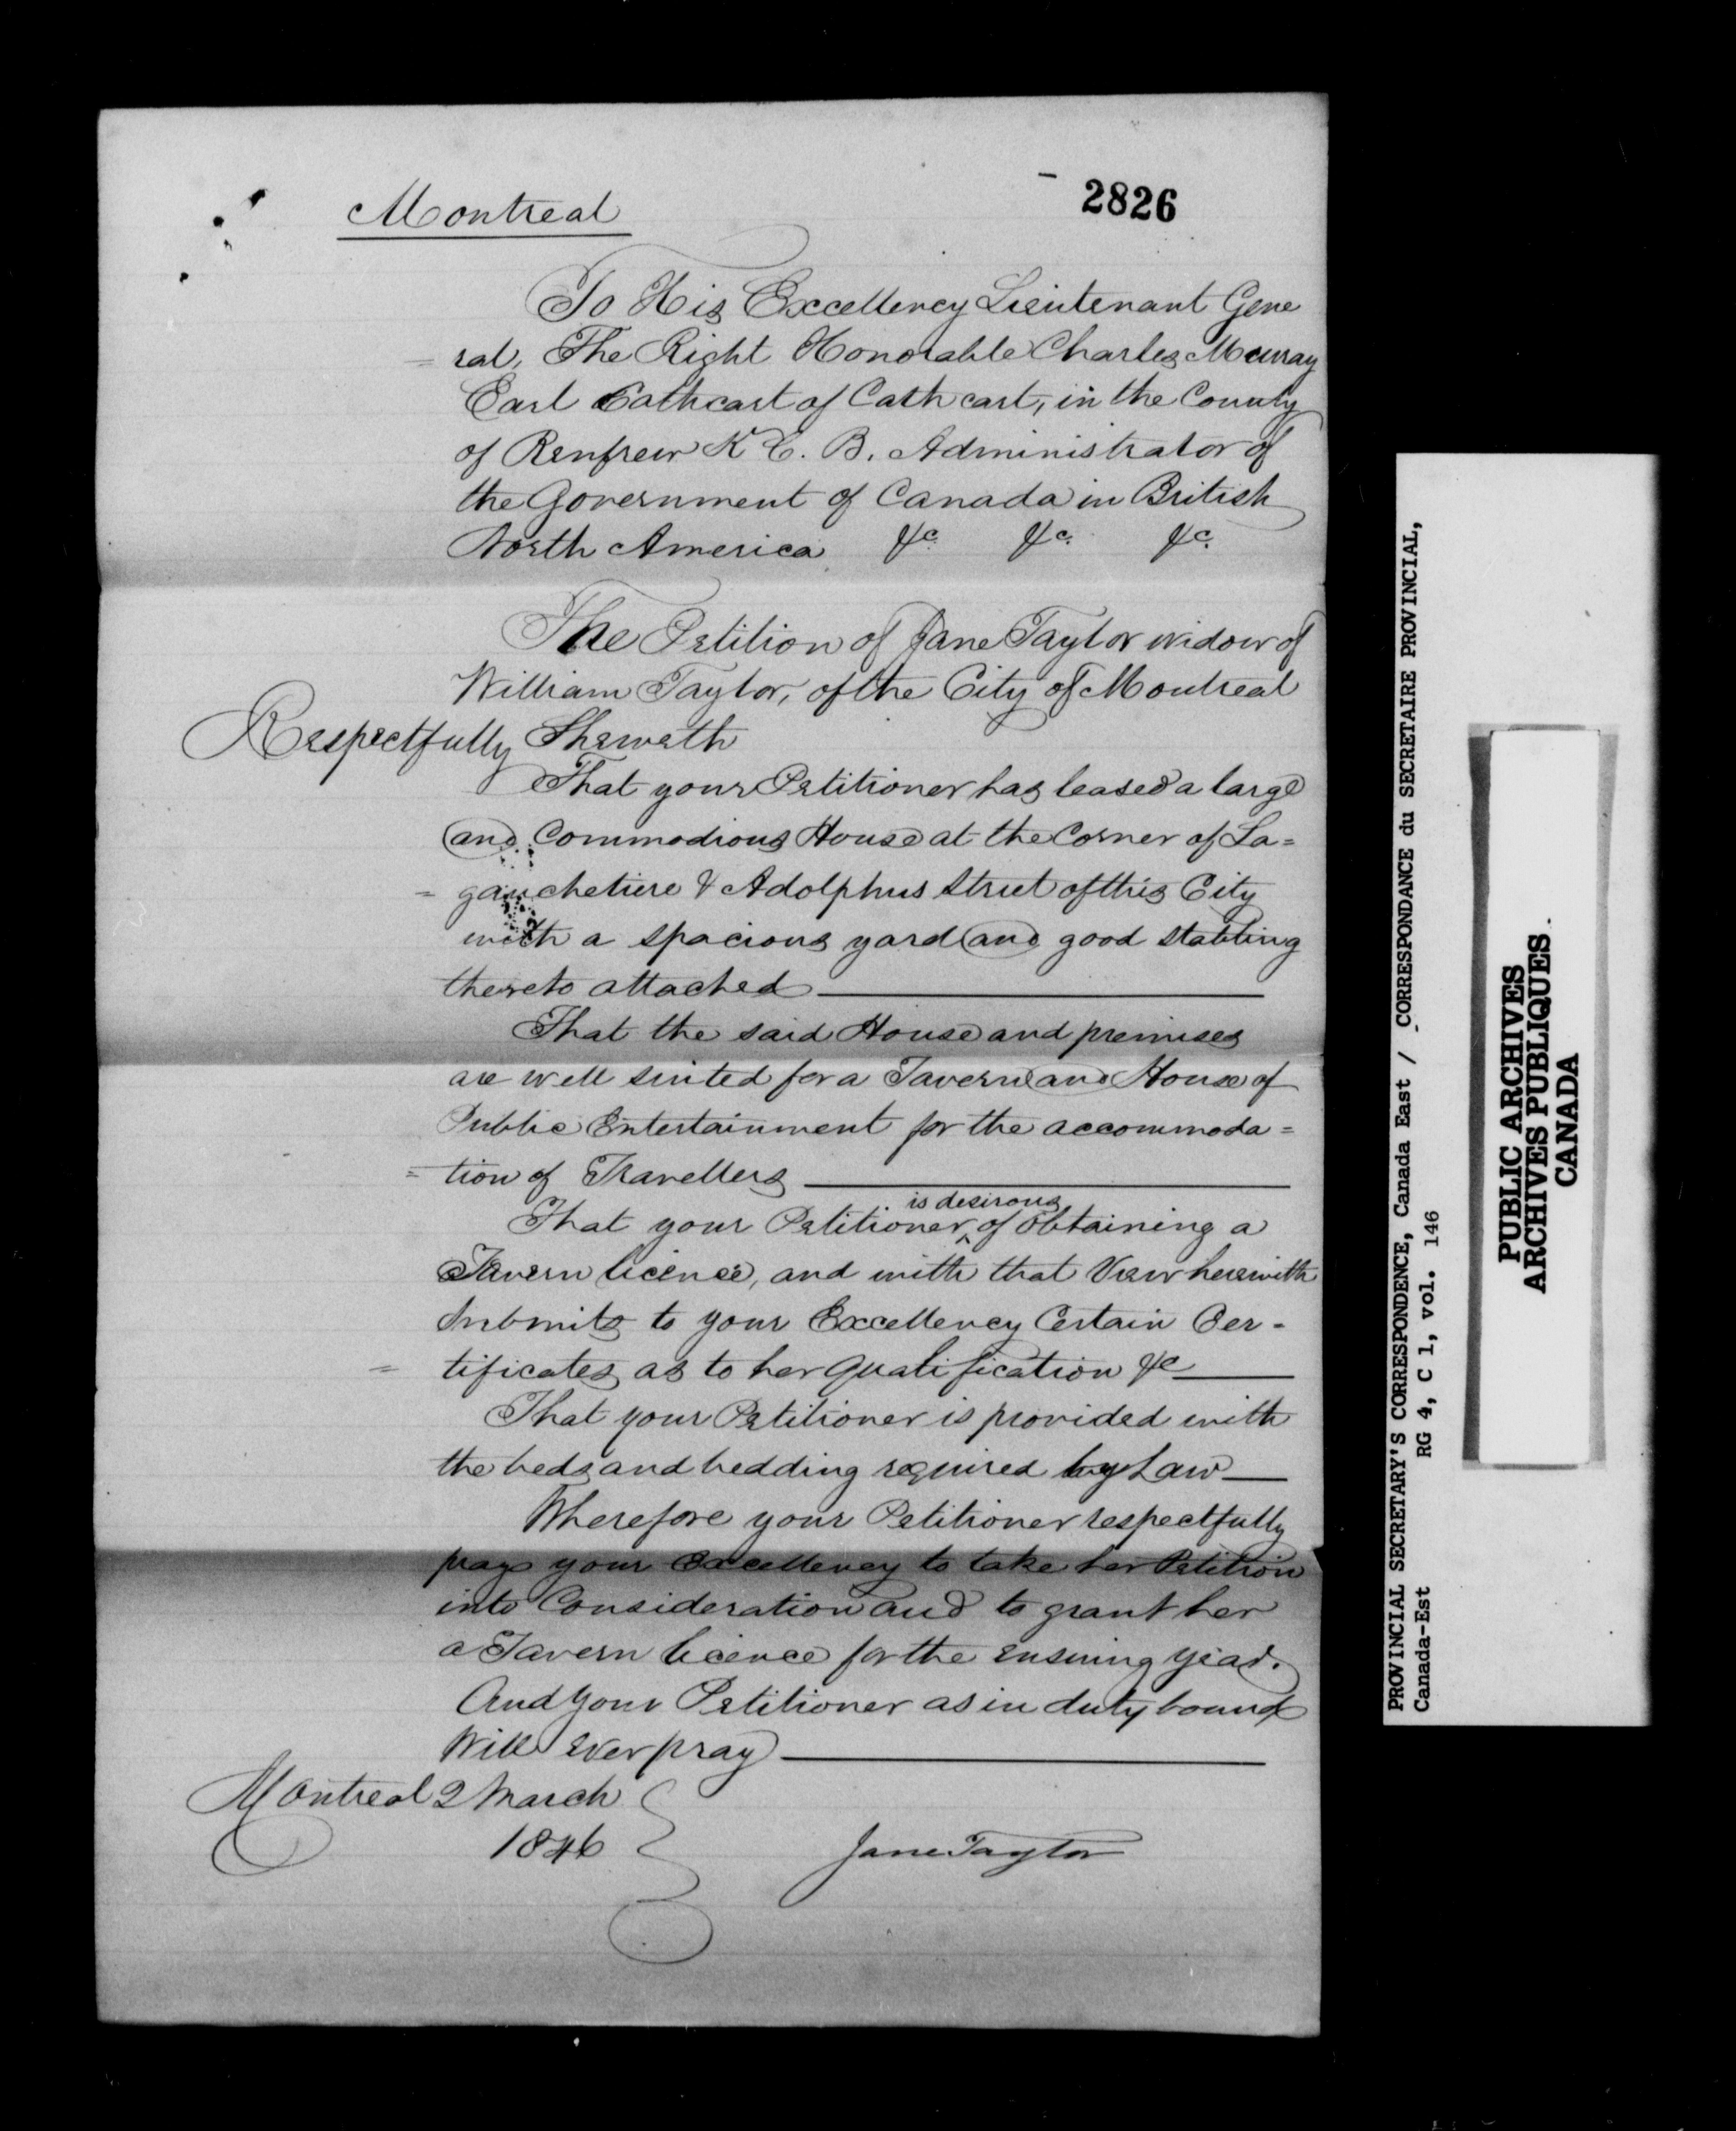 2826
Montreal
To His Excellency Lieutenant Gene
= ral, The Right Honorable Charles Murray
Earl Cathcart of Cathcart, in the County
of Renfrew K C. B. Administrator of
the Government of Canada in British
North America &c. &c. &c.
The Petition of Jane Taylor widow of
William Taylor, of the City of Montreal
Respectfully Sheweth
That your Petitioner has leased a large
and Commodious House at the Corner of La=
= gauchetiere & Adolphus Street of this City
with a spacious yard and good stabling
thereto attached
That the said House and premises
are well suited for a Tavern and House of
Public Entertainment for the accommoda =
= tion of Travellers
That your Petitioner ^ is desirous of obtaining a
Tavern licence, and with that View herewith
Submits to your Excellency Certain Cer -
= tificates as to her qualification &c
That your Petitioner is provided with
the beds and bedding required by Law
Wherefore your Petitioner respectfully
prays your Excellency to take her Petition
into Consideration and to grant her
a Tavern licence for the ensuing year.
And your Petitioner as in duty bound
Will ever pray
Montreal 2 March
1846
Jane Taylor
PROVINCIAL SECRETARY'S CORRESPONDENCE, Canada East / CORRESPONDANCE du SECRETAIRE PROVINCIAL,
Canada-Est RG 4, C 1, vol. 146
PUBLIC ARCHIVES
ARCHIVES PUBLIQUES
CANADA